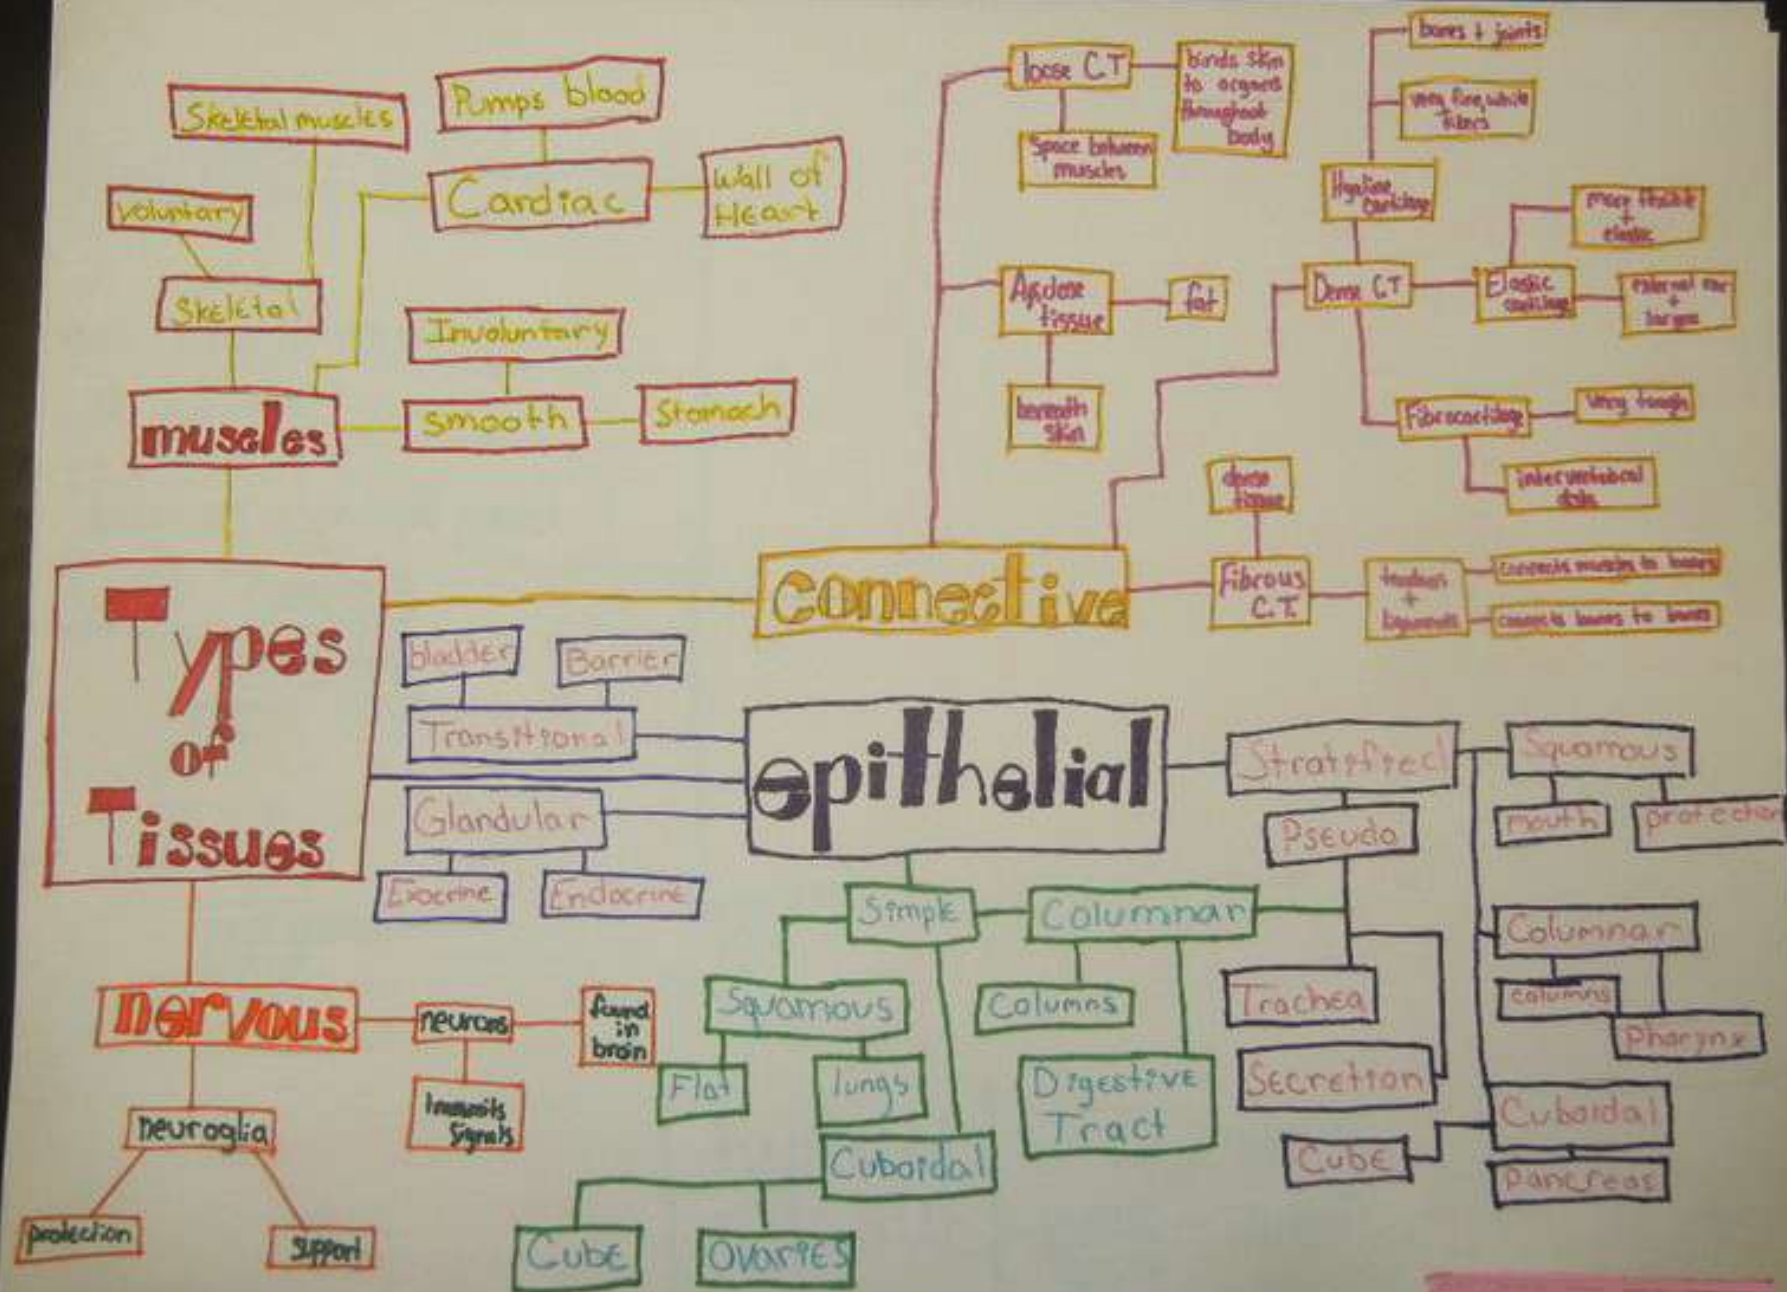 Types
of
Tissues
muscles
Skeletal
voluntary
Skeletal muscles
Cardiac
Pumps blood
Wall of
Heart
smooth
Involuntary
Stomach
connective
loose C.T
binds skin
to organs
throughout
body
Space between
muscles
tissue
fat
beneath
skin
Dense C.T
Hyaline
cartilage
bones + joints
very fine, white
fibers
Elastic
cartilage
more flexible
+
elastic
external ear
+
Fibrocartilage
very tough
Fibrous
C.T.
dense
tissue
tendons
+
ligaments
connects muscles to bones
connects bones to bones
epithelial
Transitional
bladder
Barrier
Glandular
Exocrine
Endocrine
Simple
Squamous
Flat
lungs
Cuboidal
Cube
Ovaries
Columnar
Columns
Digestive
Tract
Stratified
Pseudo
Trachea
Secretion
Squamous
mouth
protection
Columnar
columns
Pharynx
Cuboidal
Cube
pancreas
nervous
neurons
found
in
brain
transmits
signals
neuroglia
protection
support